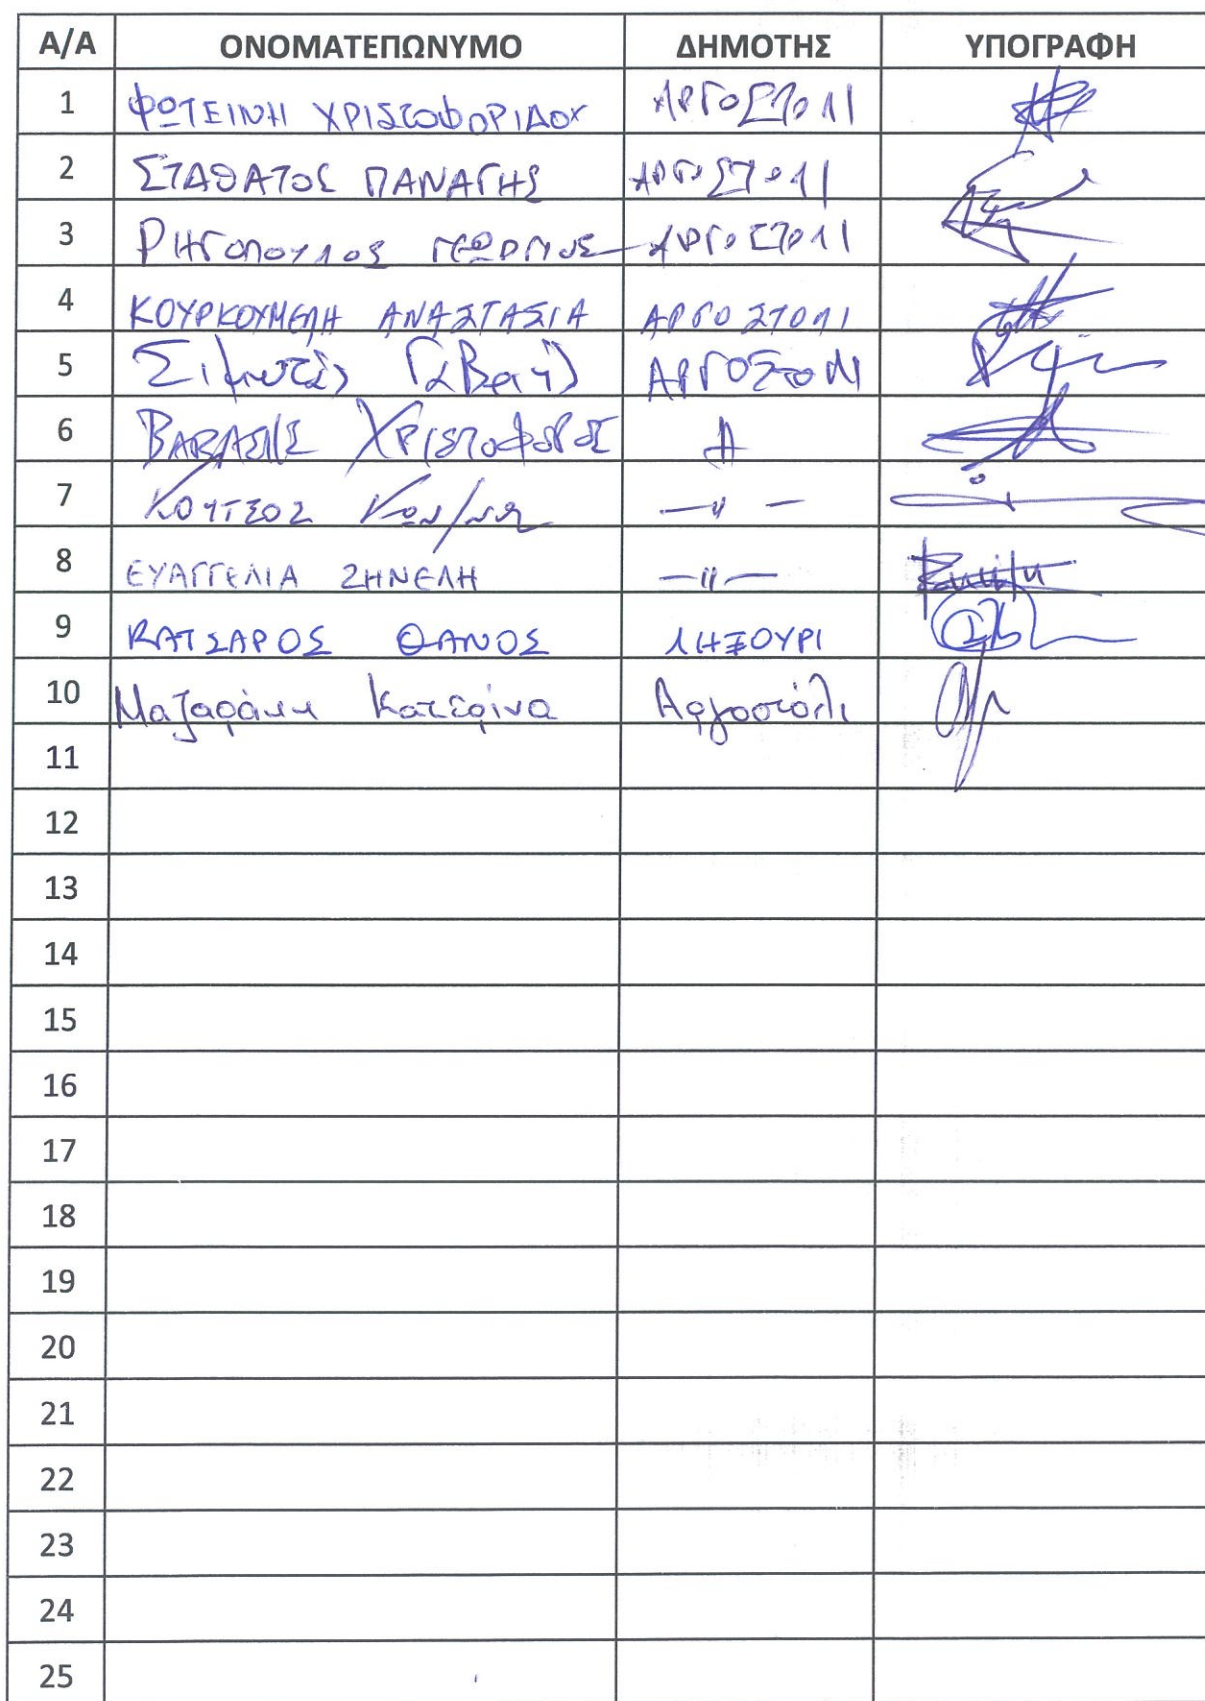 Α/Α ΟΝΟΜΑΤΕΠΩΝΥΜΟ ΔΗΜΟΤΗΣ ΥΠΟΓΡΑΦΗ
1 ΦΩΤΕΙΝΗ ΧΡΙΣΤΟΦΟΡΙΔΟΥ ΑΡΓΟΣΤΟΛΙ
2 ΣΤΑΘΑΤΟΣ ΠΑΝΑΓΗΣ ΑΡΓΟΣΤΟΛΙ
3 ΡΗΓΟΠΟΥΛΟΣ ΓΕΩΡΓΙΟΣ ΑΡΓΟΣΤΟΛΙ
4 ΚΟΥΡΚΟΥΜΕΛΗ ΑΝΑΣΤΑΣΙΑ ΑΡΓΟΣΤΟΛΙ
5 ΑΡΓΟΣΤΟΛΙ
6 ΧΡΙΣΤΟΦΟΡΟΣ
7 ΚΟΥΤΣΟΣ Κων/νος —〃—
8 ΕΥΑΓΓΕΛΙΑ ΖΗΝΕΛΗ —〃—
9 ΚΑΤΣΑΡΟΣ ΘΑΝΟΣ ΛΗΞΟΥΡΙ
10 Μαζαράκη Κατερίνα Αργοστόλι
11
12
13
14
15
16
17
18
19
20
21
22
23
24
25